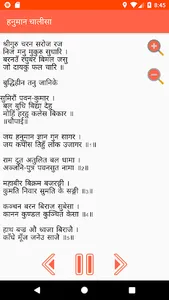 8:45
हनुमान चालीसा
श्रीगुरु चरन सरोज रज
निज मनु मुकुरु सुधारि ।
बरनउँ रघुबर बिमल जसु
जो दायकु फल चारि ॥
बुद्धिहीन तनु जानिके
सुमिरौं पवन-कुमार ।
बल बुधि बिद्या देहु
मोहिं हरहु कलेस बिकार ॥
॥चौपाई॥
जय हनुमान ज्ञान गुन सागर ।
जय कपीस तिहुँ लोक उजागर ॥१॥
राम दूत अतुलित बल धामा ।
अञ्जनि-पुत्र पवनसुत नामा ॥२॥
महाबीर बिक्रम बजरङ्गी ।
कुमति निवार सुमति के सङ्गी ॥३॥
कञ्चन बरन बिराज सुबेसा ।
कानन कुण्डल कुञ्चित केसा ॥४॥
हाथ बज्र औ ध्वजा बिराजै ।
काँधे मूँज जनेउ साजै ॥५॥